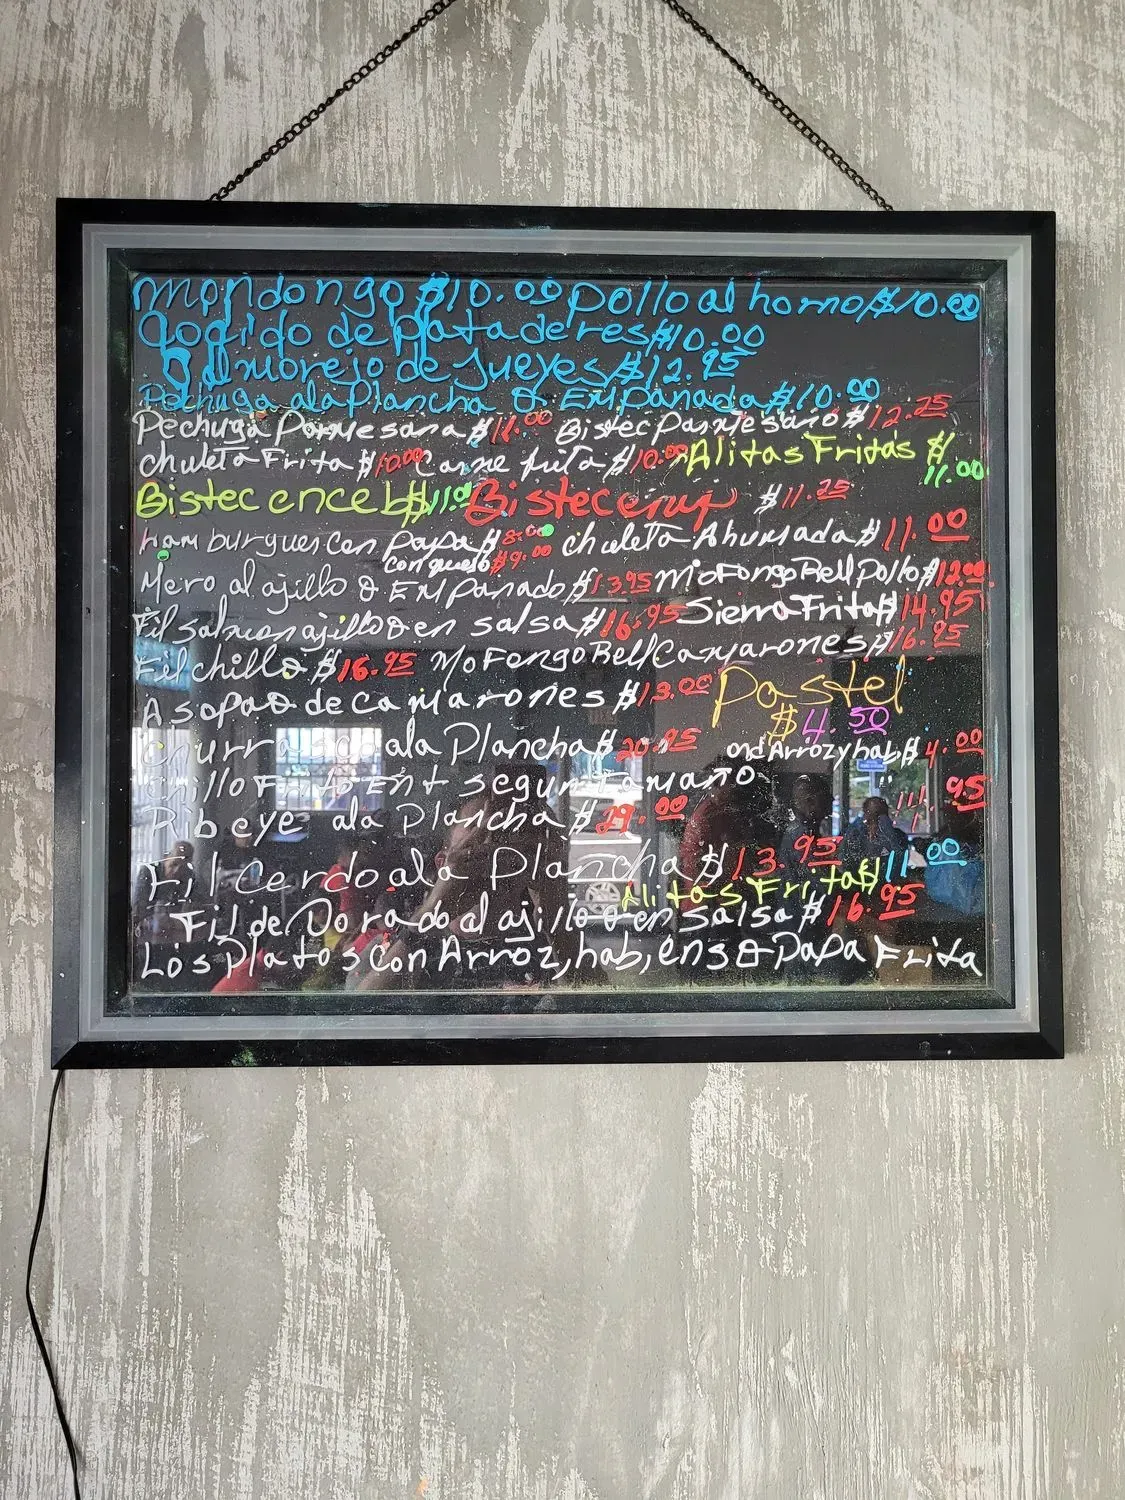 Mondongo $10.00 Pollo al horno $10.00
Cocido de Patade res $10.00
Salmorejo de Jueyes $12.95
Pechuga ala Plancha o EMPanada $10.00
Pechuga Parmesana $11.00 Bistec Parmesano $12.25
chuleta Frita $10.00 Carne frita $10.00 Alitas Fritas $11.00
Bistec enceb $11.00 Bistec emp $11.25
Hamburgues Con papa $8.00 chuleta Ahumada $11.00
Con queso $9.00
Mero al ajillo o EMPanado $13.95 MoFongo Rell Pollo $12.00
Fil Salmon ajillo o en salsa $16.95 Sierra Frita $14.95
Fil chillo $16.95 MoFongo Rell Camarones $16.95
Asopao de Camarones $13.00 Pastel $4.50
Churrasco ala Plancha $20.95 ond Arroz y hab $4.00
Chillo Frito Ent segun Tamaño
Rib eye ala Plancha $29.00 11.95
Fil Cerdo ala Plancha $13.95
Alitas Frita $11.00
Fil de Dorado al ajillo o en Salsa $16.95
Los Platos Con Arroz, hab, ens o PaPa Frita